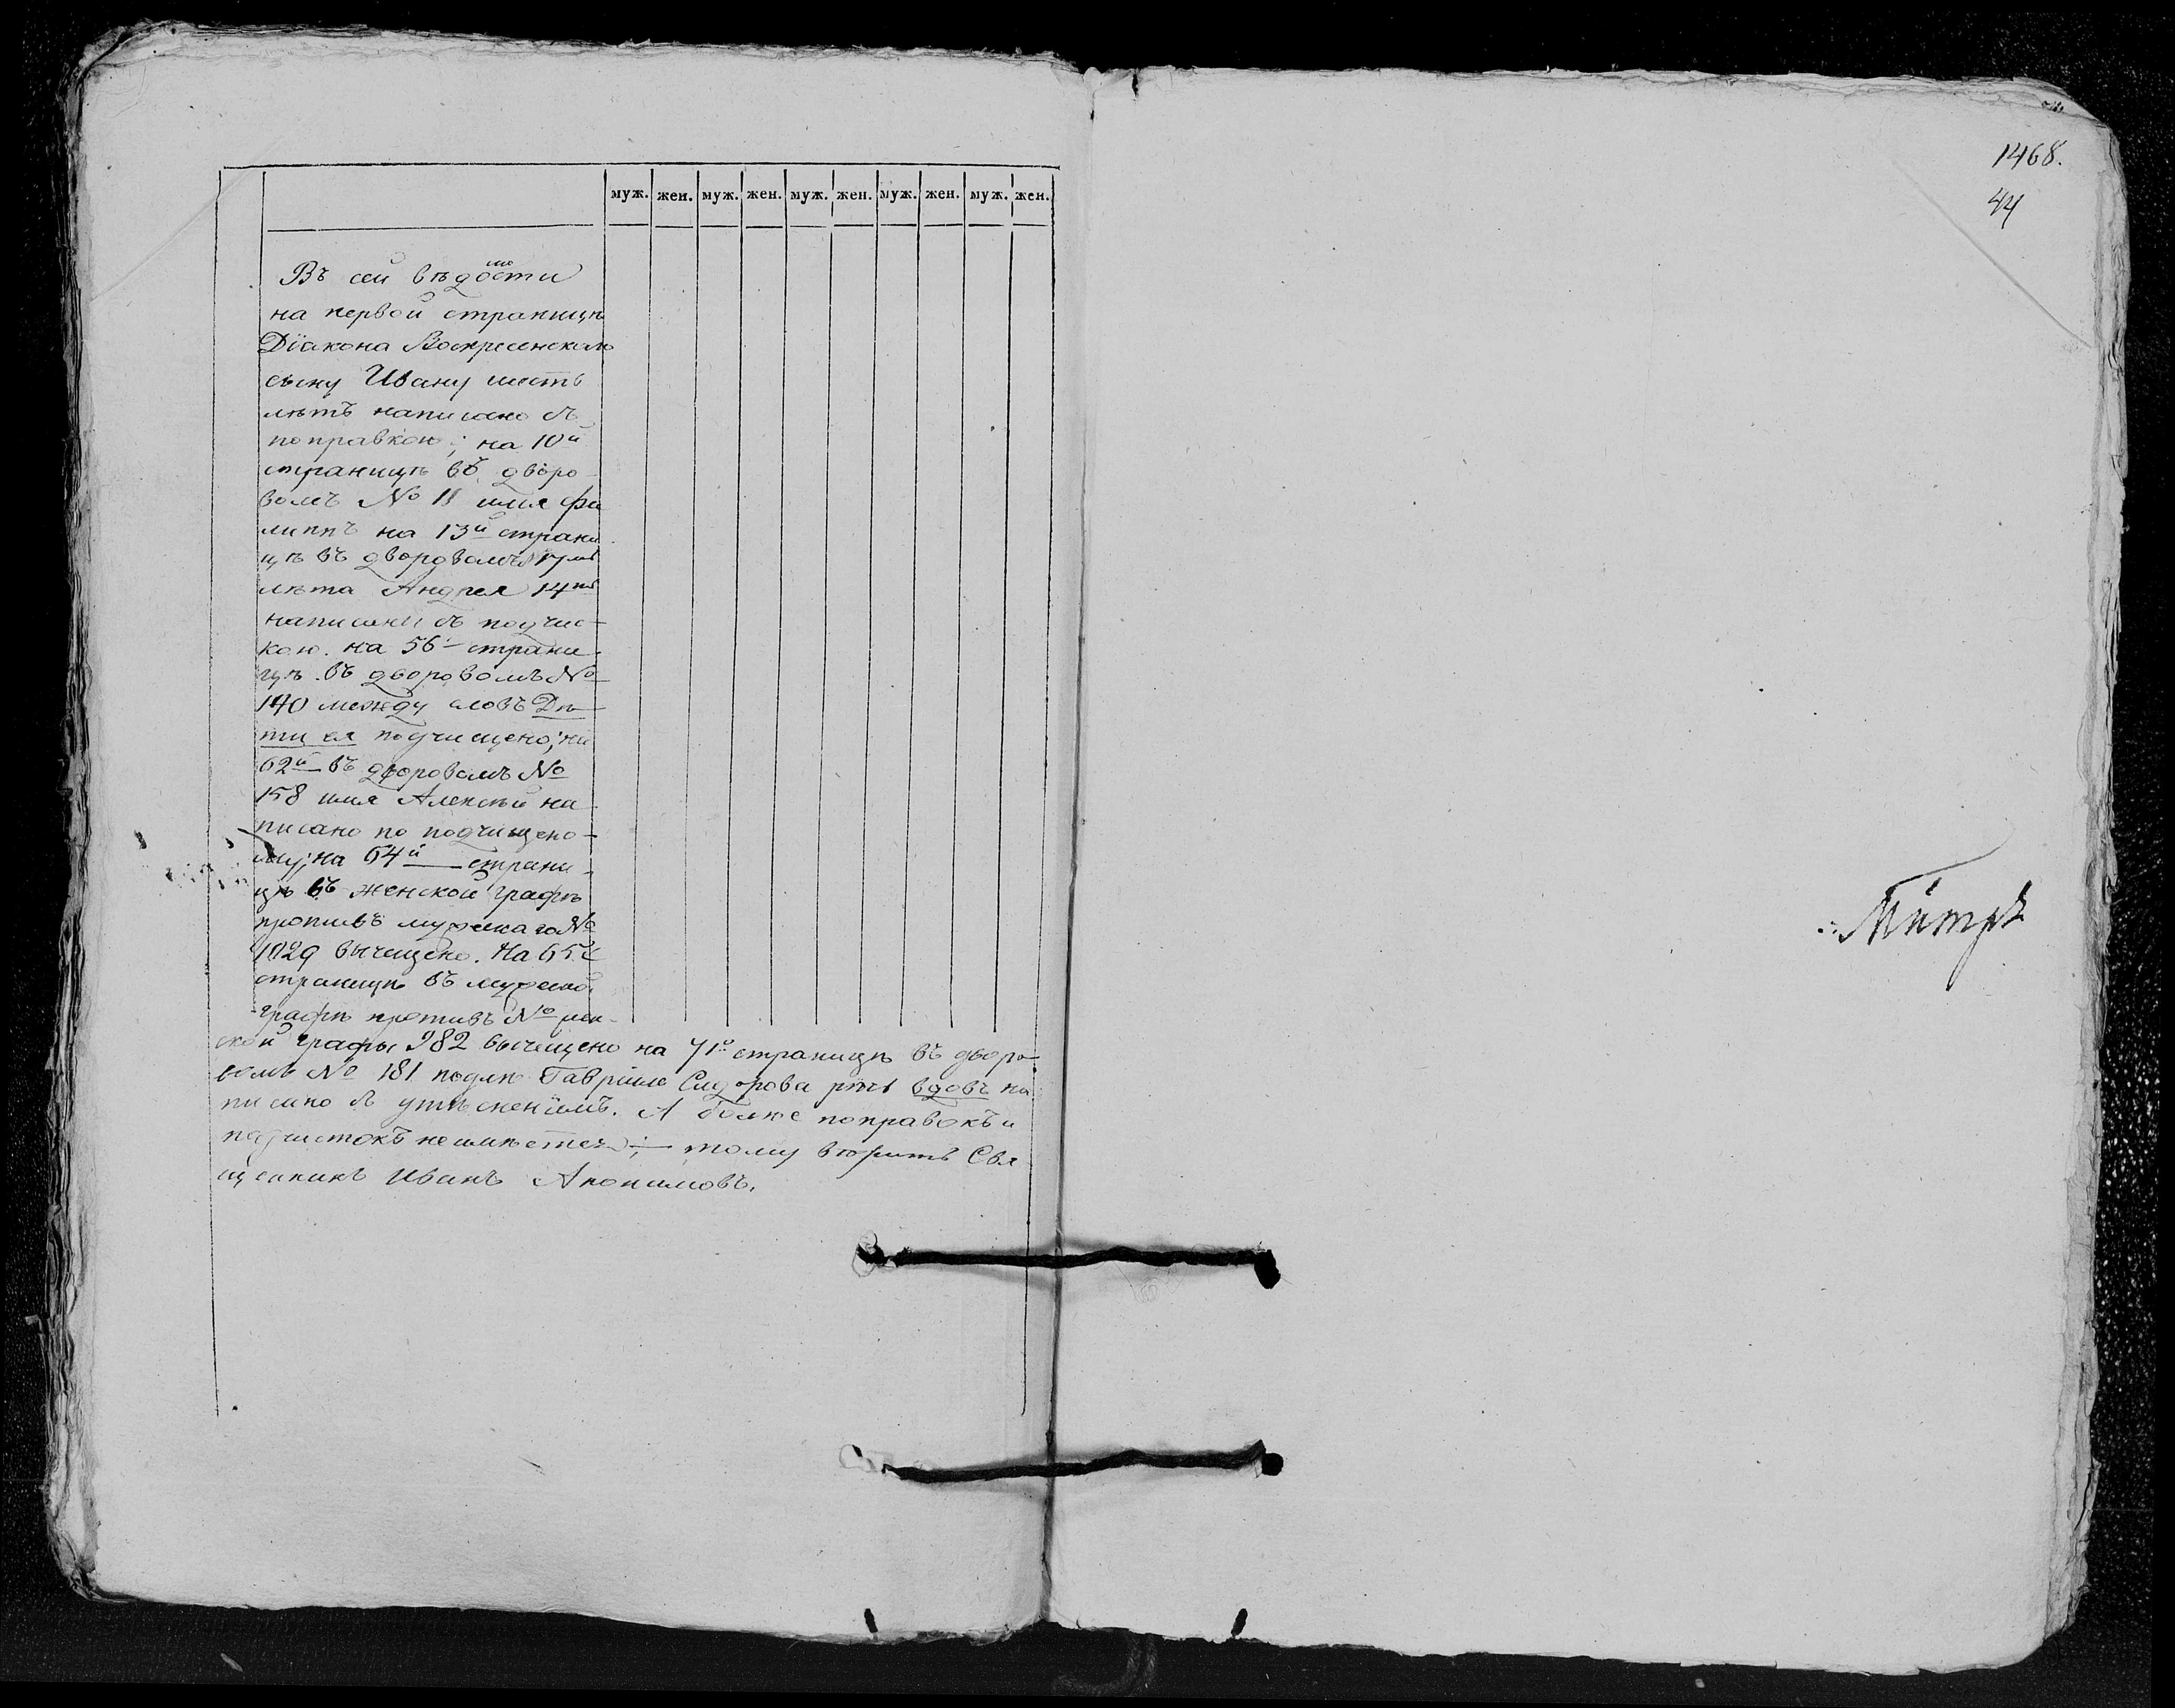 1468.
44
муж. жен. муж. жен. муж. жен. муж. жен. муж. жен.
Въ сей вѣдомости
на первой страницѣ
Діакона Воскресенскаго
сыну Ивану шесть
лѣтъ написано съ
поправкою; на 10й
страницѣ въ дворо
вомъ № 11 имя Фи
липпъ на 13й страни
цѣ въ дворовомъ 17мъ
лѣта Андрея 14ть
написаны съ подчис-
кою. на 56й страни-
цѣ въ дворовомъ №
140 между словъ Дѣ-
ти ея подчищено; на
62й въ дворовомъ №
158 имя Алексѣй на
писано по подчищено-
му; на 64й страни-
цѣ въ женской графѣ
противъ мужскаго №
1029 вычищено. На 65й
страницѣ въ мужской
графѣ противъ № жен-
ской графы 982 вычищено на 71й страницѣ въ дворо-
вомъ № 181 подлѣ Гавріила Сидорова вдовъ на
писано съ утѣсненіемъ. А болѣе поправокъ и
подчистокъ не имѣется; — тому вѣритъ Свя
щенникъ Иванъ